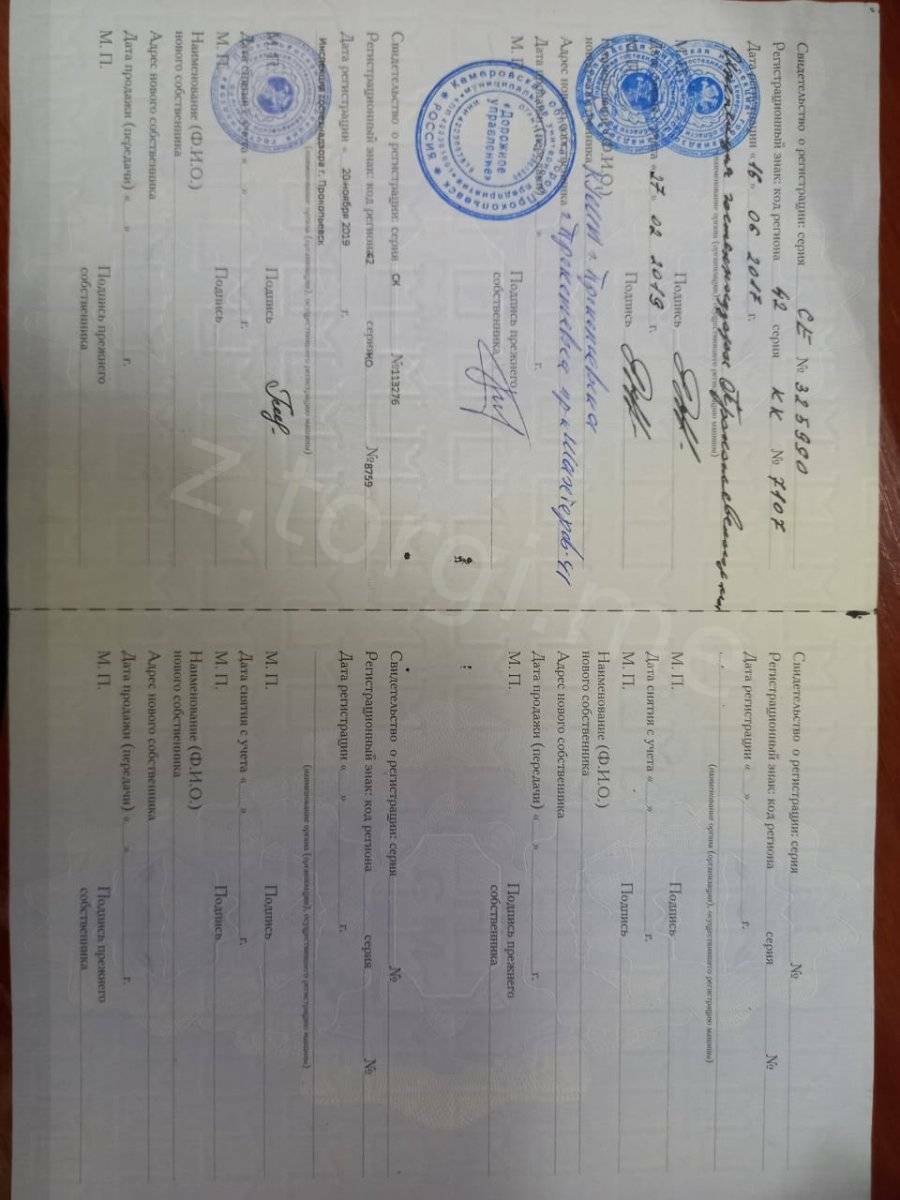 Свидетельство о регистрации: серия СЕ № 325990
Регистрационный знак: код региона 42 серия КК № 7107
Дата регистрации «16» 06 2017 г.
Инспекция гостехнадзора
(наименование органа (организации), осуществившего регистрацию машины)
М. П. Подпись
Дата снятия с учета «27» 02 2019 г.
М. П. Подпись
Наименование (Ф.И.О.)
нового собственника КУМИ г. Прокопьевска
Адрес нового собственника г. Прокопьевск пр. Шахтеров 41
Дата продажи (передачи) « » г.
М. П. Подпись прежнего
собственника
«Дорожное
управление»
РОССИЯ
Свидетельство о регистрации: серия СК №113276
Регистрационный знак: код региона 42 серия КО №8759
Дата регистрации « 20 ноября 2019 г.
Инспекция гостехнадзора г. Прокопьевск
(наименование органа (организации), осуществившего регистрацию машины)
М. П. Подпись
Дата снятия с учета « » г.
М. П. Подпись
Наименование (Ф.И.О.)
нового собственника
Адрес нового собственника
Дата продажи (передачи) « » г.
М. П. Подпись прежнего
собственника
Свидетельство о регистрации: серия №
Регистрационный знак: код региона серия №
Дата регистрации « » г.
(наименование органа (организации), осуществившего регистрацию машины)
М. П. Подпись
Дата снятия с учета « » г.
М. П. Подпись
Наименование (Ф.И.О.)
нового собственника
Адрес нового собственника
Дата продажи (передачи) « » г.
М. П. Подпись прежнего
собственника
Свидетельство о регистрации: серия №
Регистрационный знак: код региона серия №
Дата регистрации « » г.
(наименование органа (организации), осуществившего регистрацию машины)
М. П. Подпись
Дата снятия с учета « » г.
М. П. Подпись
Наименование (Ф.И.О.)
нового собственника
Адрес нового собственника
Дата продажи (передачи) « » г.
М. П. Подпись прежнего
собственника
z.torgi.me